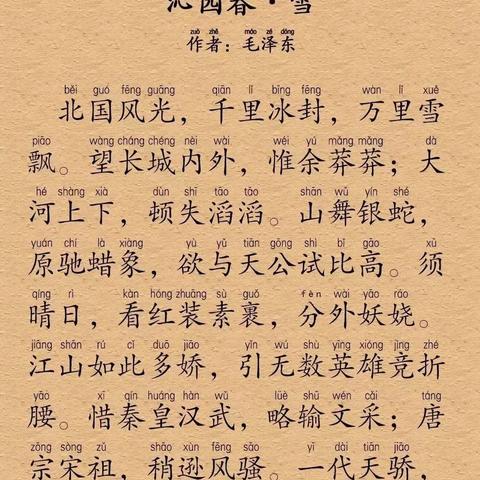 沁园春·雪
zuò zhě máo zé dōng
作者：毛泽东
běi guó fēng guāng qiān lǐ bīng fēng wàn lǐ xuě
北国风光，千里冰封，万里雪
piāo wàng cháng chéng nèi wài wéi yú mǎng mǎng dà
飘。望长城内外，惟余莽莽；大
hé shàng xià dùn shī tāo tāo shān wǔ yín shé
河上下，顿失滔滔。山舞银蛇，
yuán chí là xiàng yù yǔ tiān gōng shì bǐ gāo xū
原驰蜡象，欲与天公试比高。须
qíng rì kàn hóng zhuāng sù guǒ fèn wài yāo ráo
晴日，看红装素裹，分外妖娆。
jiāng shān rú cǐ duō jiāo yǐn wú shù yīng xióng jìng zhé
江山如此多娇，引无数英雄竞折
yāo xī qín huáng hàn wǔ lüè shū wén cǎi táng
腰。惜秦皇汉武，略输文采；唐
zōng sòng zǔ shāo xùn fēng sāo yī dài tiān jiāo
宗宋祖，稍逊风骚。一代天骄，